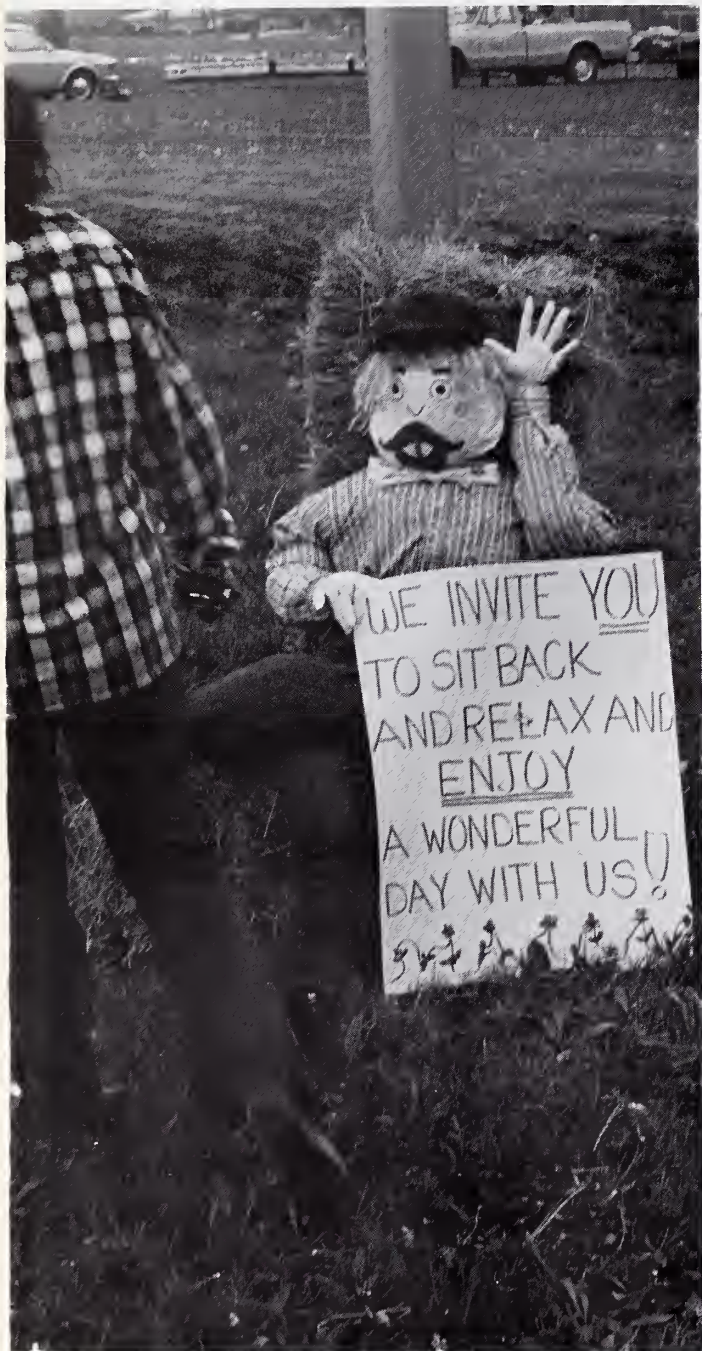 WE INVITE YOU
TO SIT BACK
AND RELAX AND
ENJOY
A WONDERFUL
DAY WITH US!!